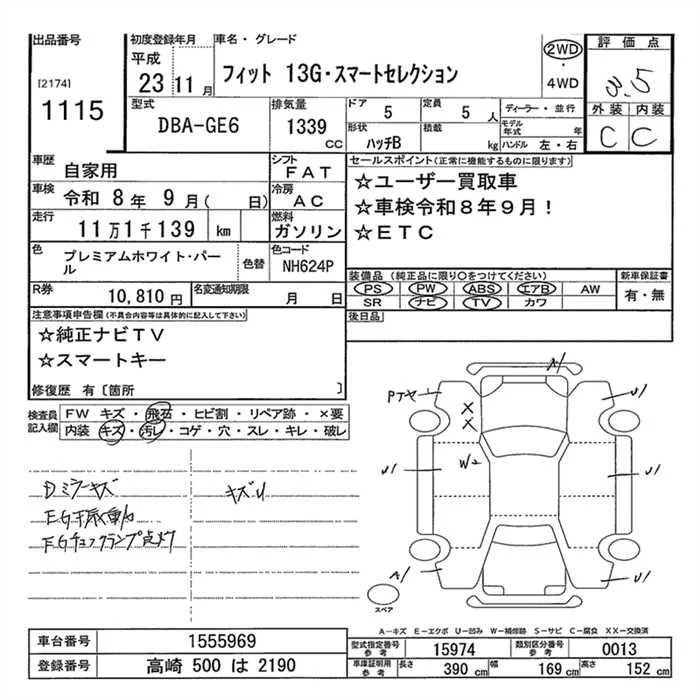 出品番号 初度登録年月 車名・グレード 2WD 評価点
[2174] 平成 フィット 13G・スマートセレクション ・ 3.5
1115 23 11 月 4WD
型式 排気量 ドア 定員 ディーラー・並行 外装 内装
DBA-GE6 1339 CC 5 5 人 モデル年式 年 C C
形状 積載
ハッチB kg ハンドル 左・右
車歴 自家用 シフト FAT セールスポイント(正常に機能するものに限ります)
車検 令和 8 年 9 月( 日) 冷房 AC ☆ユーザー買取車
走行 11万1千139 km 燃料 ガソリン ☆車検令和8年9月！
☆ETC
色 プレミアムホワイト・パール 色替 色コード NH624P
装備品(純正品に限り○をつけてください) 新車保証書
PS PW ABS エアB AW 有・無
SR ナビ TV カワ
R券 10,810 円 名変通知期限 月 日
後日品
注意事項申告欄(不具合内容等は具体的に記入して下さい)
☆純正ナビTV
☆スマートキー
修復歴 有〔箇所 〕
検査員記入欄 FW キズ・飛石・ヒビ割・リペア跡・×要
内装 キズ・汚レ・コゲ・穴・スレ・キレ・破レ
Dミラーキズ キズU
EG振動
EGチェックランプ点灯
A/
U/
X
X
W2
U/
U/
A/
U/
スペア
A―キズ E―エクボ U―凹み W―補修跡 S―サビ C―腐食 XX―交換済
車台番号 1555969
登録番号 高崎 500 は 2190
型式指定番号 参考 15974 類別区分番号 参考 0013
車庫証明用 参考 長さ 390 cm 幅 169 cm 高さ 152 cm